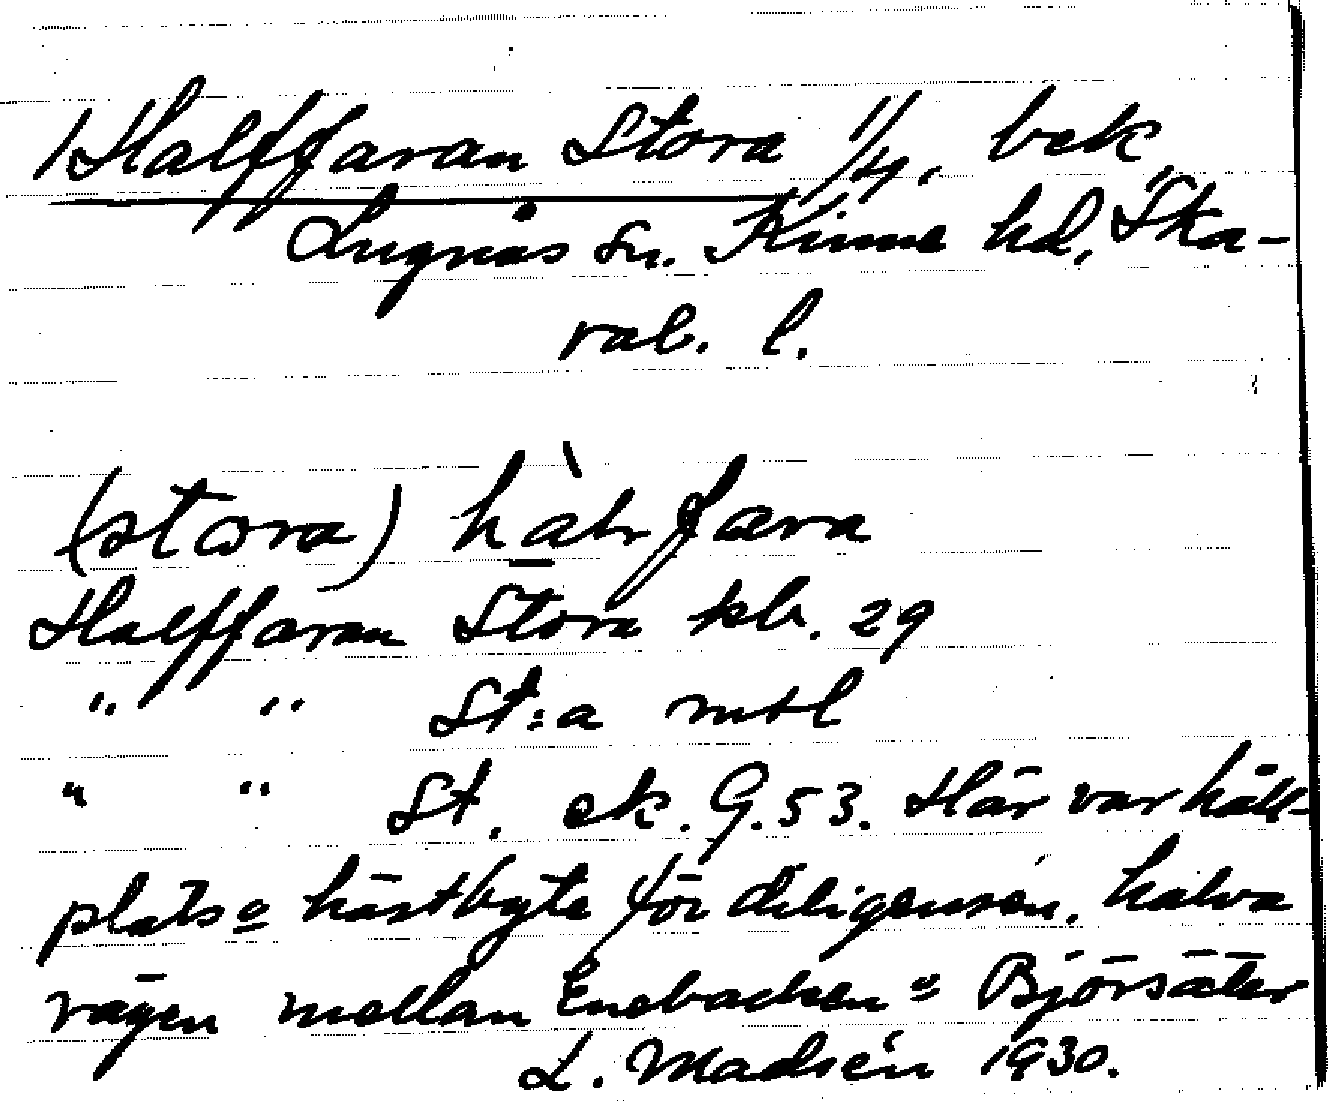 1 Halffaran Stora 1/4, bek
Lugnås sn. Kinne hd, Ska-
rab. l.
(stora) hàlvfara
Halffaran Stora kb. 29
" " St:a mtl
" " St. ek. G. 53. Här var håll-
plats o hästbyte för diligensen, halva
vägen mellan Enebacken o Björsäter
L. Madsén 1930.